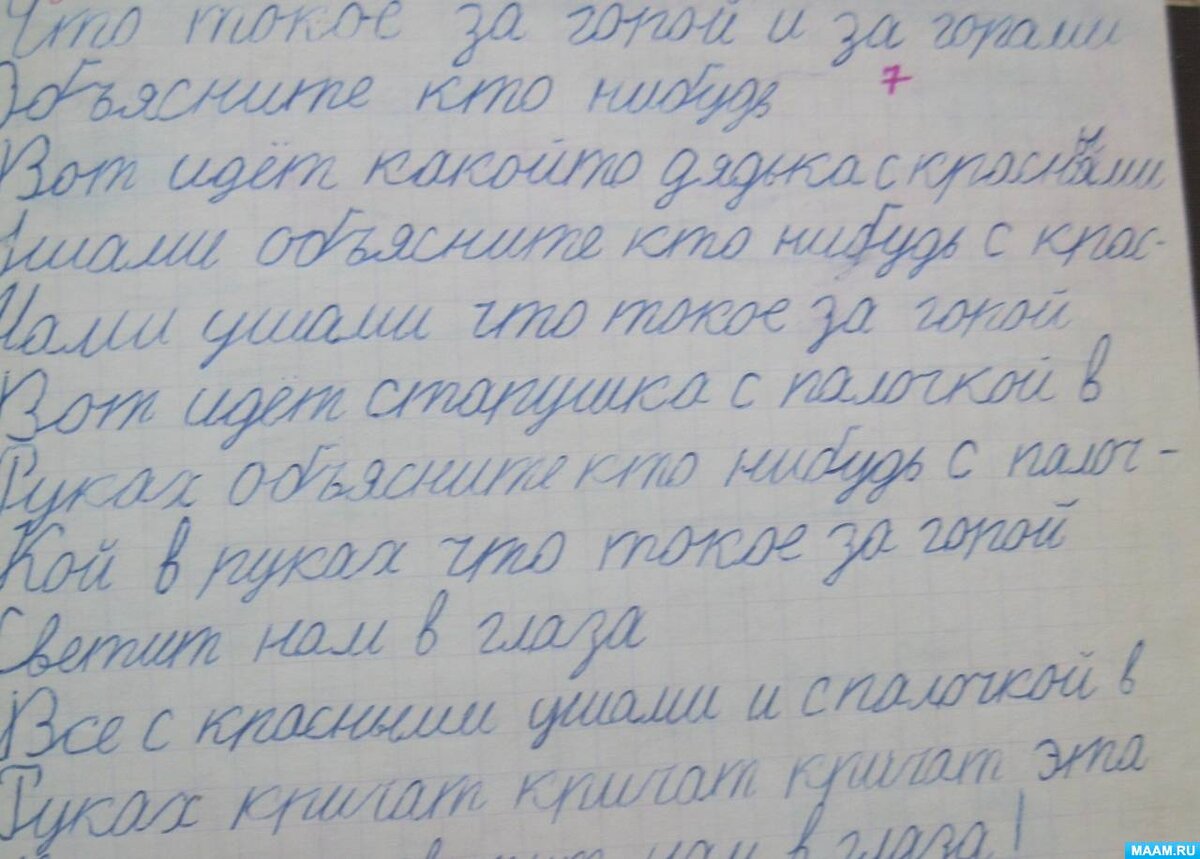 Что токое за горой и за горами
Объясните кто нибудь 7
Вот идёт какойто дядька с красными
Ушами объясните кто нибудь с крас-
Нами ушами что токое за горой
Вот идёт старушка с палочкой в
Руках объясните кто нибудь с палоч-
Кой в руках что токое за горой
Светит нам в глаза
Все с красными ушами и с палочкой в
Руках кричат кричат кричат эта
нам в глаза!
MAAM.RU